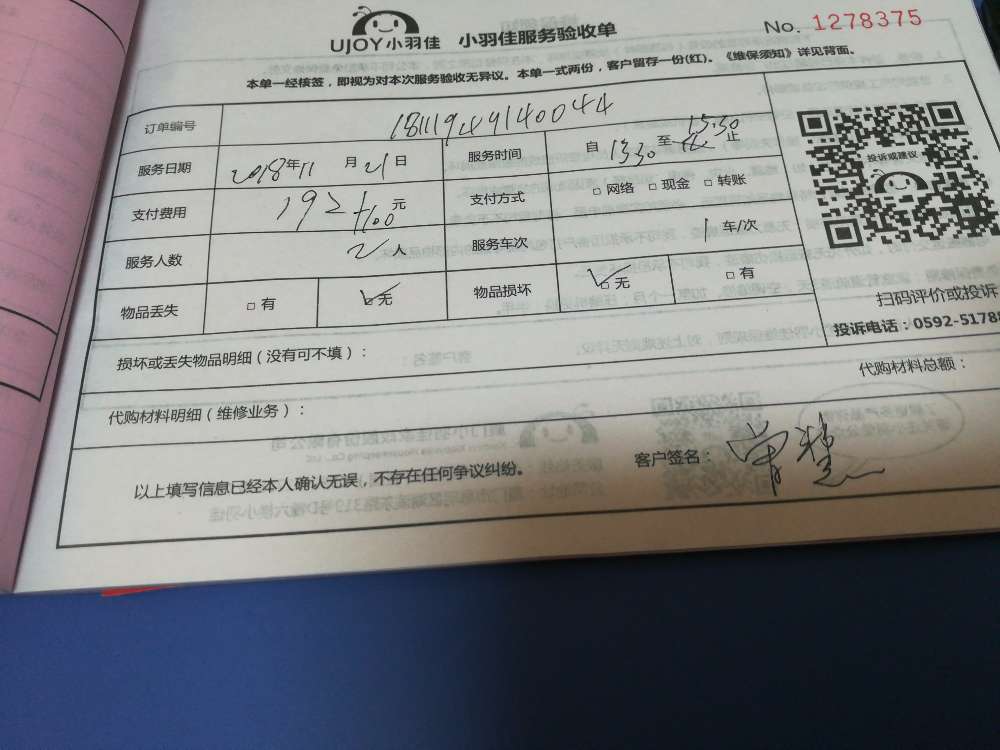 UJOY小羽佳 小羽佳服务验收单 No. 1278375
本单一经核签，即视为对本次服务验收无异议。本单一式两份，客户留存一份(红)。《维保须知》详见背面。
订单编号 18111949140044
服务日期 2018年11月21日 服务时间 自1330至15:30止
支付费用 192+100元 支付方式 □ 网络 □ 现金 □ 转账
服务人数 2人 服务车次 1车/次
物品丢失 □ 有 ☑ 无 物品损坏 ☑ 无 □ 有
投诉或建议
扫码评价或投诉
投诉电话：0592-51788
损坏或丢失物品明细（没有可不填）：
代购材料明细（维修业务）： 代购材料总额：
以上填写信息已经本人确认无误，不存在任何争议纠纷。 客户签名：